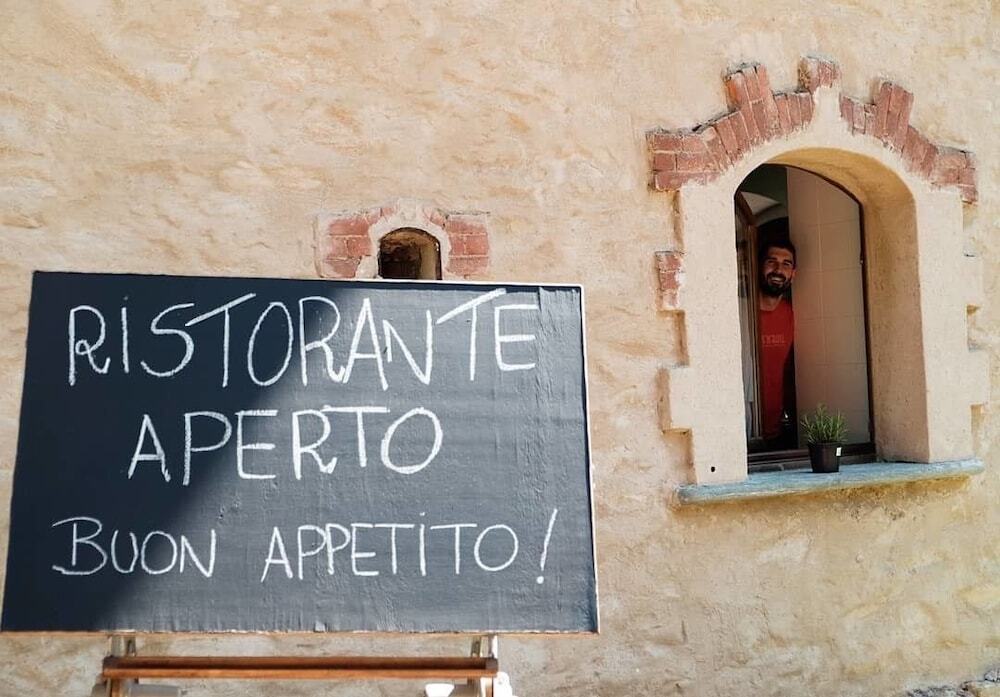 RiSTORANTE
APERTO
BUON APPETiTO!